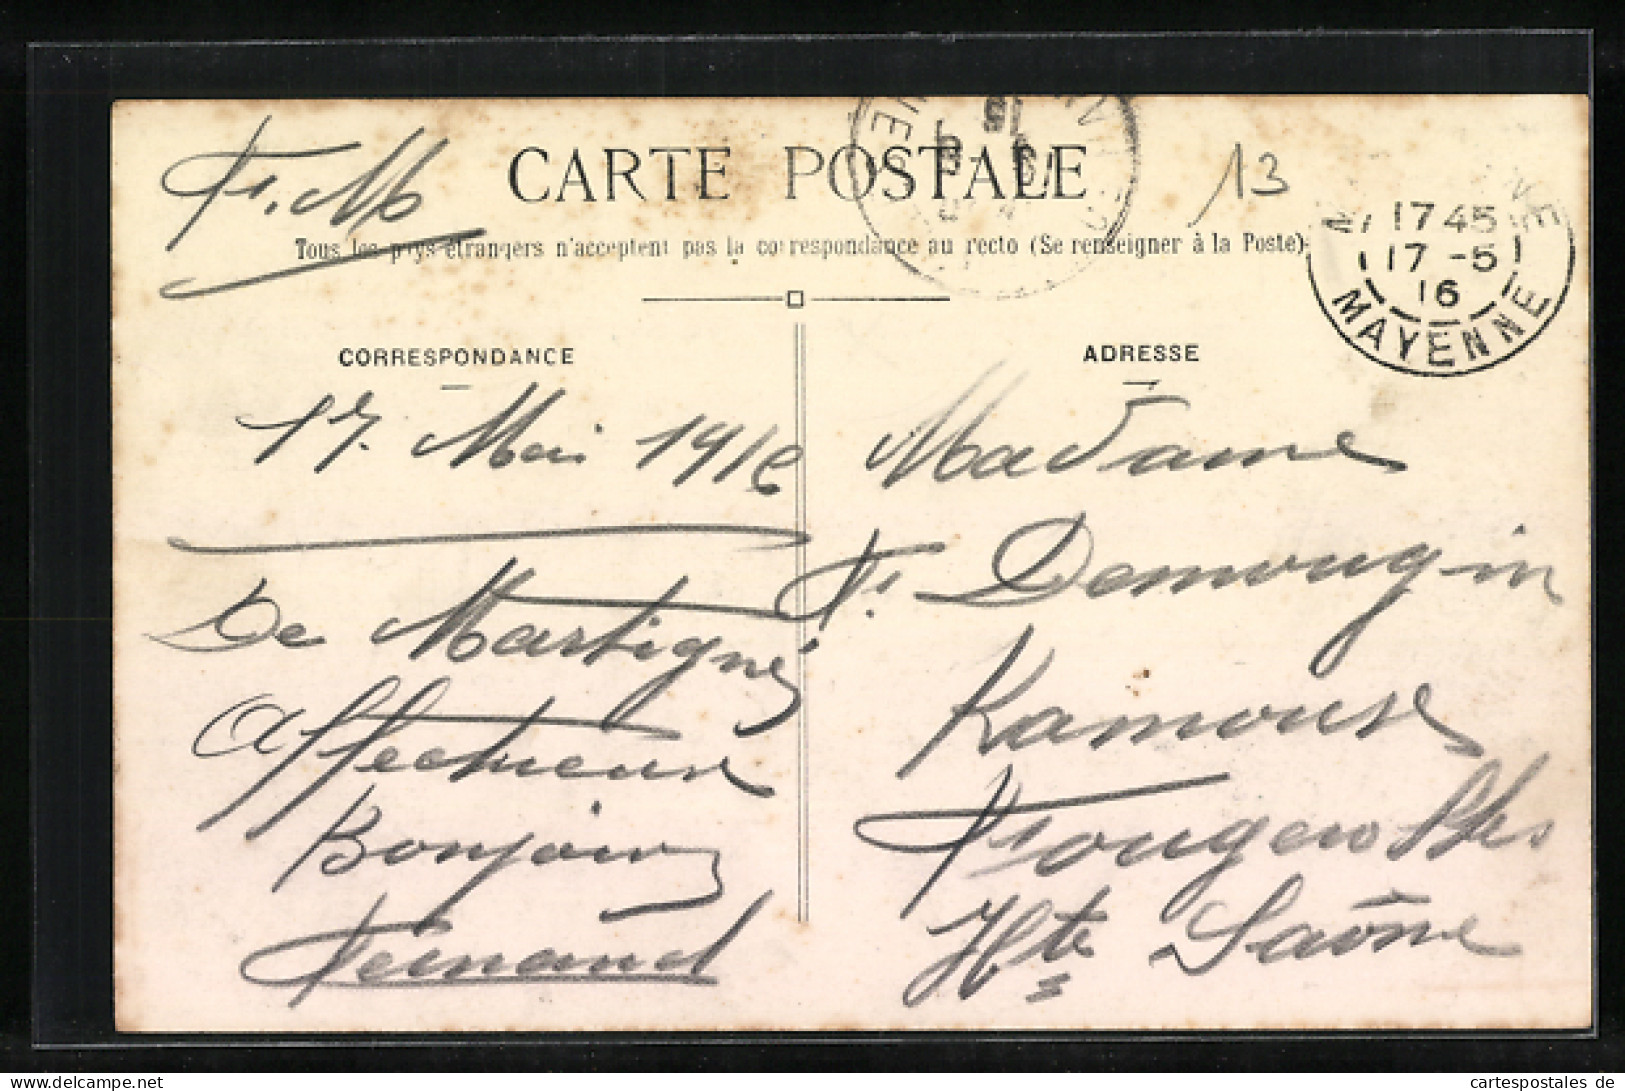 F. M
CARTE POSTALE
13
Tous les pays étrangers n'acceptent pas la correspondance au recto (Se renseigner à la Poste)
17 45
17 -5
16
MAYENNE
CORRESPONDANCE
17 Mai 1916
De Martigné
Affectueux
Bonjour
Fernand
ADRESSE
Madame
F. Demougin
Ramouse
Fougerolles
Hte Saône
cartespostales de